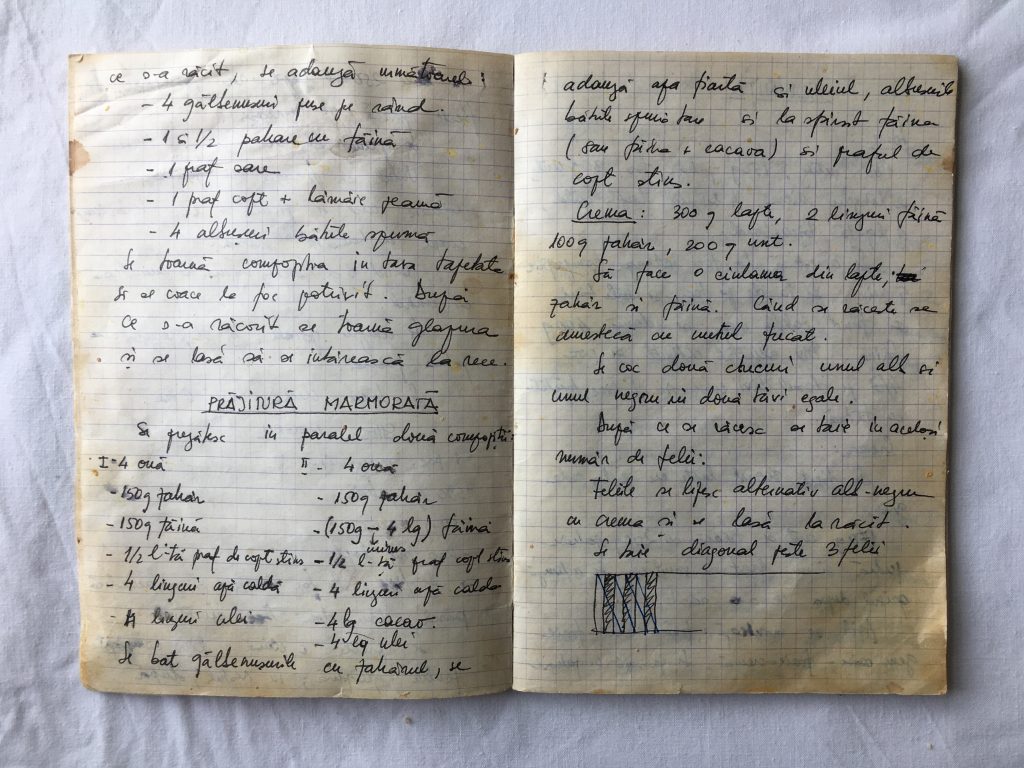 ce s-a răcit, se adaugă următoarele:
- 4 gălbenusuri puse pe rând.
- 1 și 1/2 pahare cu făină
- 1 praf sare
- 1 praf copt + lămâie geamă
- 4 albușuri bătute spumă
Se toarnă compoziția in tava tapetată
și se coace la foc potrivit. După
ce s-a răcorit se toarnă glazura
și se lasă să se intărească la rece.
PRĂJITURĂ MARMORATĂ
Se pregătesc in paralel două compoziții:
I - 4 ouă
- 150g zahăr
- 150g făină
- 1/2 li-ță praf de copt stins
- 4 linguri apă caldă
- 4 linguri ulei
II - 4 ouă
- 150g zahăr
- (150g - 4 lg) făină
minus
- 1/2 l-ță praf copt stins
- 4 linguri apă caldă
- 4 lg cacao.
- 4 lg ulei
Se bat gălbenusurile cu zahărul, se
adaugă apa fiartă și uleiul, albușurile
bătute spumă tare și la sfârsit făina
(sau făina + cacaoa) si praful de
copt stins.
Crema: 300 g lapte, 2 linguri făină
100g zahăr, 200 g unt.
Să face o ciulama din lapte,
zahăr si făină. Când se răcește se
amestecă cu untul frecat.
Se coc două blaturi unul alb si
unul negru in două tăvi egale.
După ce se răcesc se taie in acelasi
număr de felii.
Feliile se lipesc alternativ alb-negru
cu crema și se lasă la răcit.
Se taie diagonal peste 3 felii